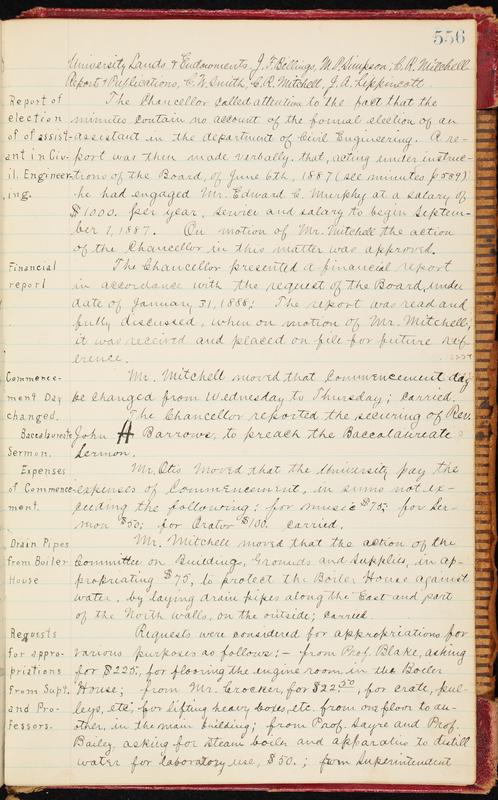 556
University Lands & Endowments, J. F. Billings, M. P. Simpson, C. R. Mitchell
Report & Publications, C. W. Smith, C. R. Mitchell, J. A. Lippincott.
Report of The Chancellor called attention to the fact that the
election minutes contain no account of the formal election of an
of of assist- assistant in the department of Civil Engineering. A re-
ant in Civ- port was then made verbally, that, acting under instruc-
il Engineer- tions of the Board, of June 6th, 1887 (see minutes p 539)
ing. he had engaged Mr. Edward C. Murphy at a salary of
$1000. per year, service and salary to begin Septem-
ber 1, 1887. On motion of Mr. Mitchell the action
of the Chancellor in this matter was approved.
Financial The Chancellor presented a financial report
report in accordance with the request of the Board, under
date of January 31, 1888: The report was read and
fully discussed, when on motion of Mr. Mitchell,
it was received and placed on file for future ref-
erence.
Commence- Mr. Mitchell moved that Commencement day
ment Day be changed from Wednesday to Thursday; carried.
changed. The Chancellor reported the securing of Rev.
Baccalaureate John H Barrows, to preach the Baccalaureate
Sermon. Sermon.
Expenses Mr. Otis moved that the University pay the
of Commence- expenses of Commencement, in sums not ex-
ment. ceeding the following: for music $75; for Ser-
mon $50; for Orator $100. carried.
Drain Pipes Mr. Mitchell moved that the action of the
from Boiler Committee on Building, Grounds and Supplies, in ap-
House propriating $75, to protect the Boiler House against
water, by laying drain pipes along the East and part
of the North walls, on the outside; carried.
Requests Requests were considered for appropriations for
for appro- various purposes as follows:- from Prof. Blake, asking
priations for $225, for flooring the engine room in the Boiler
from Supt. House; from Mr. Crocker, for $22.50, for crate, pul-
and Pro- leys, etc, for lifting heavy boxes, etc. from one floor to an-
fessors. other, in the main building; from Prof. Sayre and Prof.
Bailey, asking for steam boiler and apparatus to distill
water for laboratory use, $50.; from Superintendent